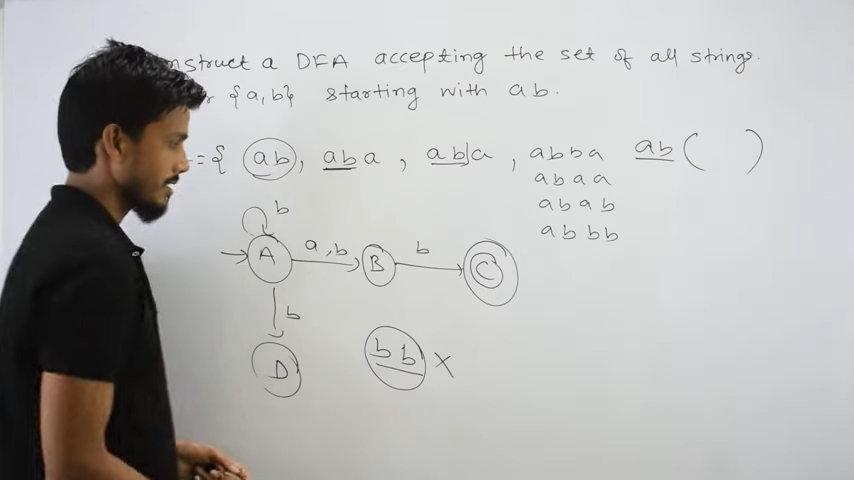 nstruct a DFA accepting the set of all strings.
{a,b} starting with ab.
= { ab, aba, ab|a, abba ab ( )
abaa
abab
abbb
b
A a,b B b C
b
D bb X